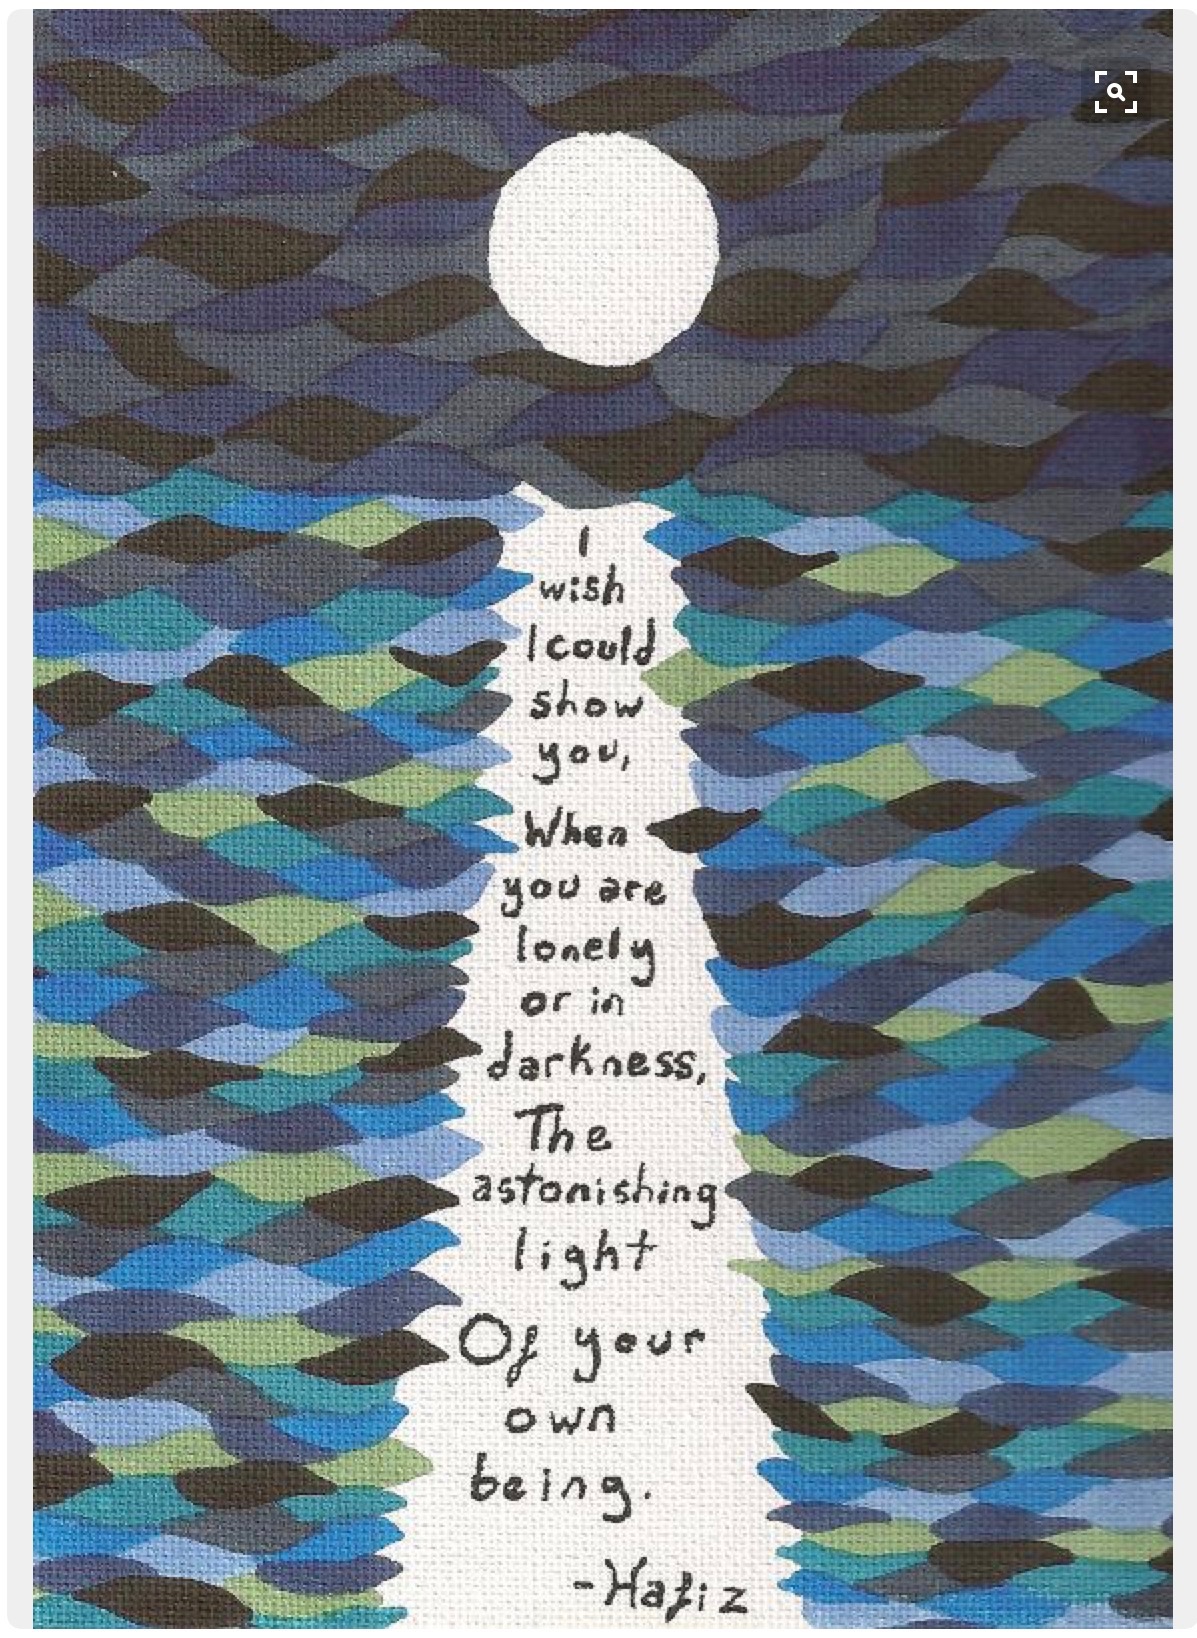 I
wish
I could
show
you,
When
you are
lonely
or in
darkness,
The
astonishing
light
Of your
own
being.
-Hafiz